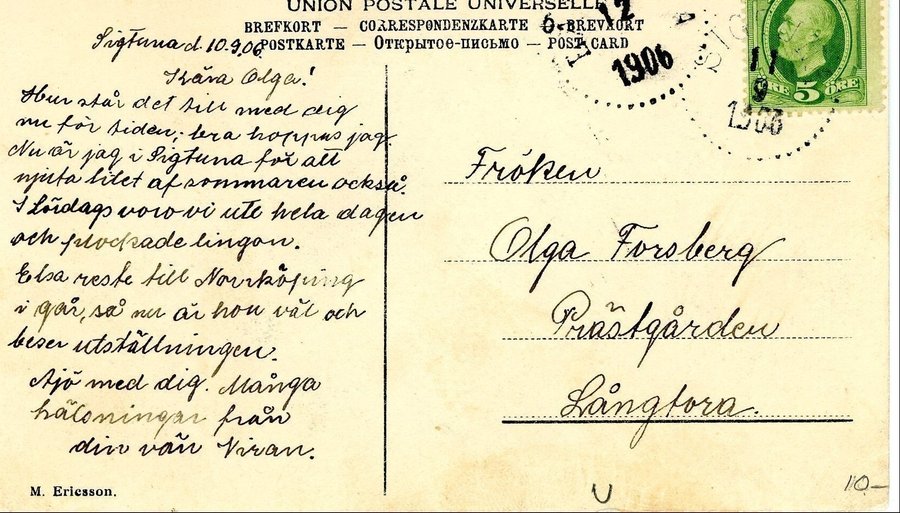 UNION POSTALE UNIVERSELLE
BREFKORT — CORRESPONDENZKARTE — BREVKORT
POSTKARTE — Открытое-письмо — POST CARD
Sigtuna d. 10.9.06
Kära Olga!
Hur står det till med dig
nu för tiden; bra hoppas jag.
Nu är jag i Sigtuna för att
njuta litet af sommaren också.
I Lördags voro vi ute hela dagen
och plockade lingon.
Elsa reste till Norrköping
i går, så nu är hon väl och
beser utställningen.
Ajö med dig. Många
hälsningar från
din vän Viran.
M. Ericsson.
12
1906
SIG
11
9
1906
5 ÖRE
Fröken
Olga Forsberg
Prästgården
Långtora.
10-